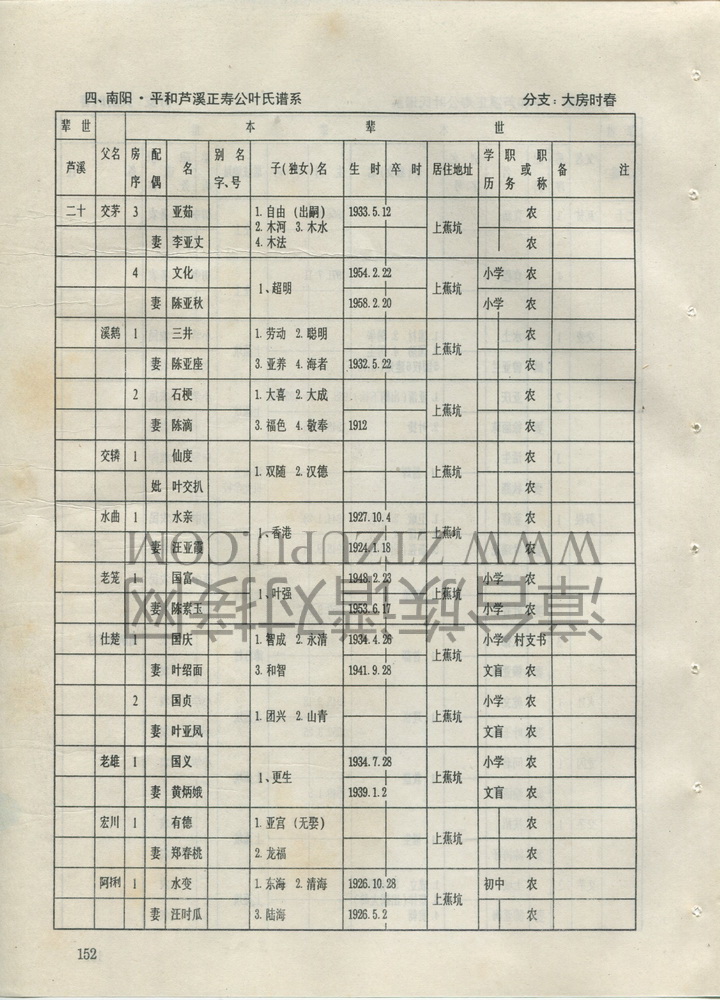 四、南阳·平和芦溪正寿公叶氏谱系 分支：大房时春
辈世 本辈世
芦溪 父名 房序 配偶 名 别名字、号 子(独女)名 生时 卒时 居住地址 学历 职或职务 称 备注
二十 交茅 3 亚茹 1.自由(出嗣) 1933.5.12 上蕉坑 农
2.木河 3.木水
妻 李亚丈 4.木法 农
4 文化 1、超明 1954.2.22 上蕉坑 小学 农
妻 陈亚秋 1958.2.20 小学 农
溪鹅 1 三井 1.劳动 2.聪明 上蕉坑 农
妻 陈亚座 3.亚养 4.海者 1932.5.22 农
2 石梗 1.大喜 2.大成 上蕉坑 农
妻 陈滴 3.福色 4.敬奉 1912 农
交辚 1 仙度 1.双随 2.汉德 上蕉坑 农
妣 叶交扒 农
水曲 1 水亲 1、香港 1927.10.4 上蕉坑 农
妻 汪亚霞 1924.1.18 农
老笼 1 国富 1、叶强 1948.2.23 上蕉坑 小学 农
妻 陈素玉 1953.6.17 小学 农
仕楚 1 国庆 1.智成 2.永清 1934.4.26 上蕉坑 小学 村支书
妻 叶绍面 3.和智 1941.9.28 文盲 农
2 国贞 1.团兴 2.山青 上蕉坑 小学 农
妻 叶亚凤 文盲 农
老雄 1 国义 1、更生 1934.7.28 上蕉坑 小学 农
妻 黄炳娥 1939.1.2 文盲 农
宏川 1 有德 1.亚宫(无娶) 上蕉坑 农
妻 郑春桃 2.龙福 农
阿琍 1 水变 1.东海 2.清海 1926.10.28 上蕉坑 初中 农
妻 汪时瓜 3.陆海 1926.5.2 农
152
WWW.ZTZUPU.COM
漳台族谱对接网